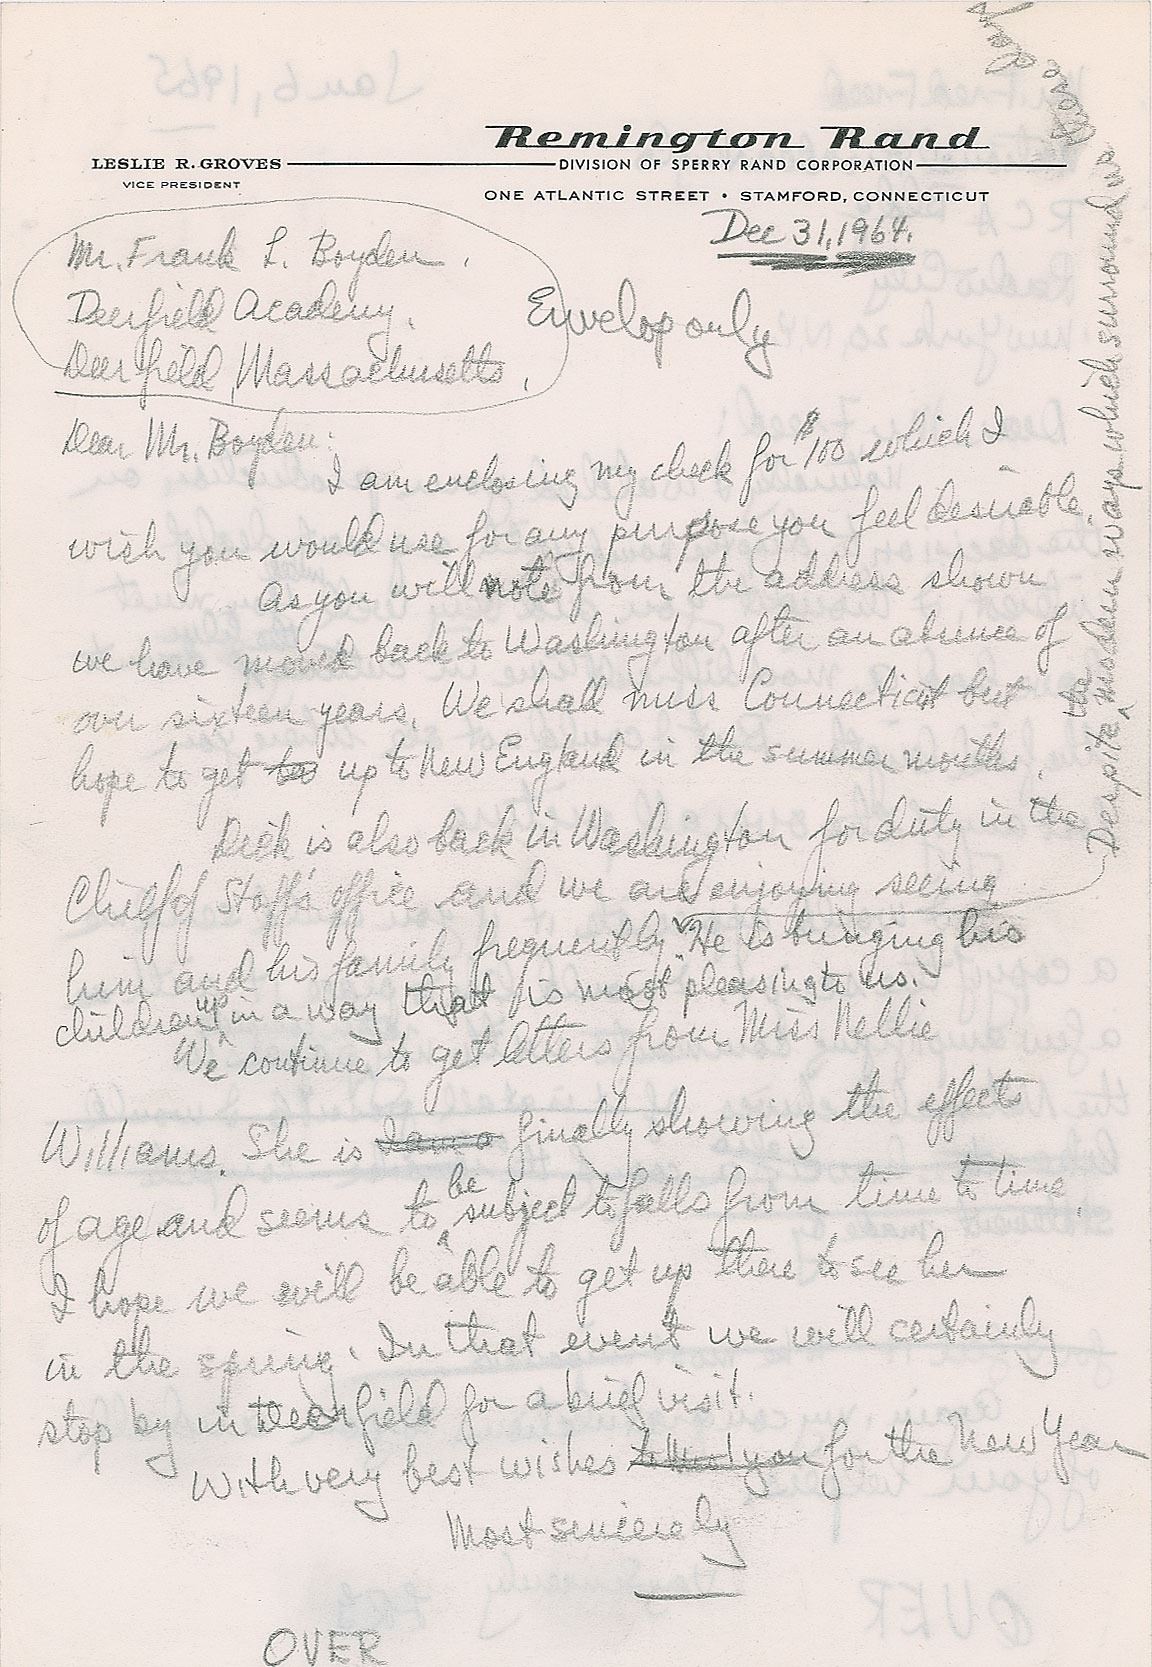 Remington Rand
LESLIE R. GROVES
VICE PRESIDENT
DIVISION OF SPERRY RAND CORPORATION
ONE ATLANTIC STREET • STAMFORD, CONNECTICUT
Dec 31, 1964.
Mr. Frank L. Boyden.
Deerfield Academy.
Deerfield, Massachusetts.
Envelop only
Dear Mr. Boyden:
I am enclosing my check for $100 which I
wish you would use for any purpose you feel desirable.
As you will note from the address shown
we have moved back to Washington after an absence of
over sixteen years. We shall miss Connecticut but
hope to get to up to New England in the summer months.
Dick is also back in Washington for duty in the
Chief of Staff's office and we are enjoying seeing
him and his family frequently. He is bringing his
children up in a way that is most pleasing to us.
Despite the modern ways which surround us
We continue to get letters from Miss Nellie
Williams. She is finally showing the effects
of age and seems to be subject to falls from time to time.
I hope we will be able to get up there to see her
in the spring. In that event we will certainly
stop by in Deerfield for a brief visit.
With very best wishes for the New Year
Most sincerely
OVER